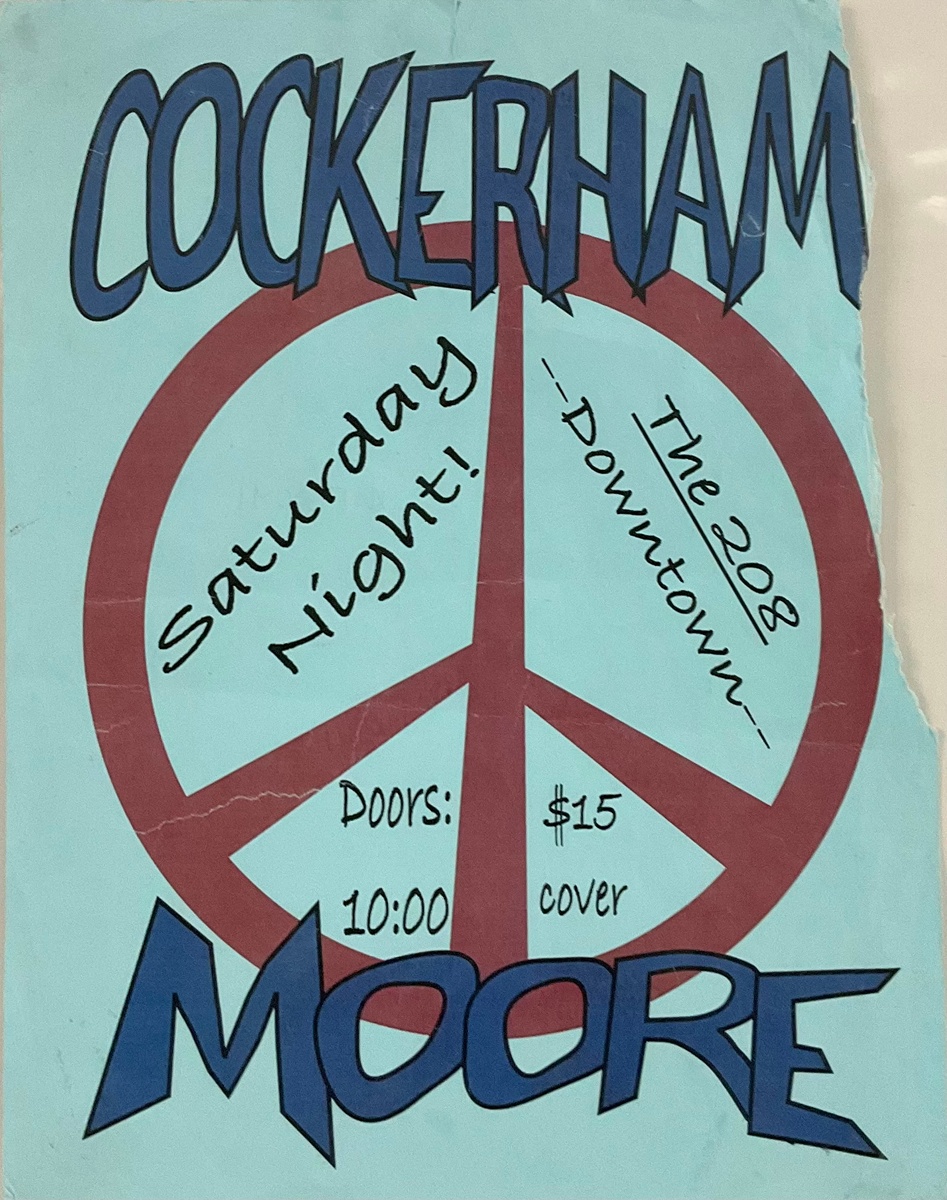 COCKERHAM
Saturday
Night!
The 208
--Downtown--
Doors:
10:00
$15
cover
MOORE